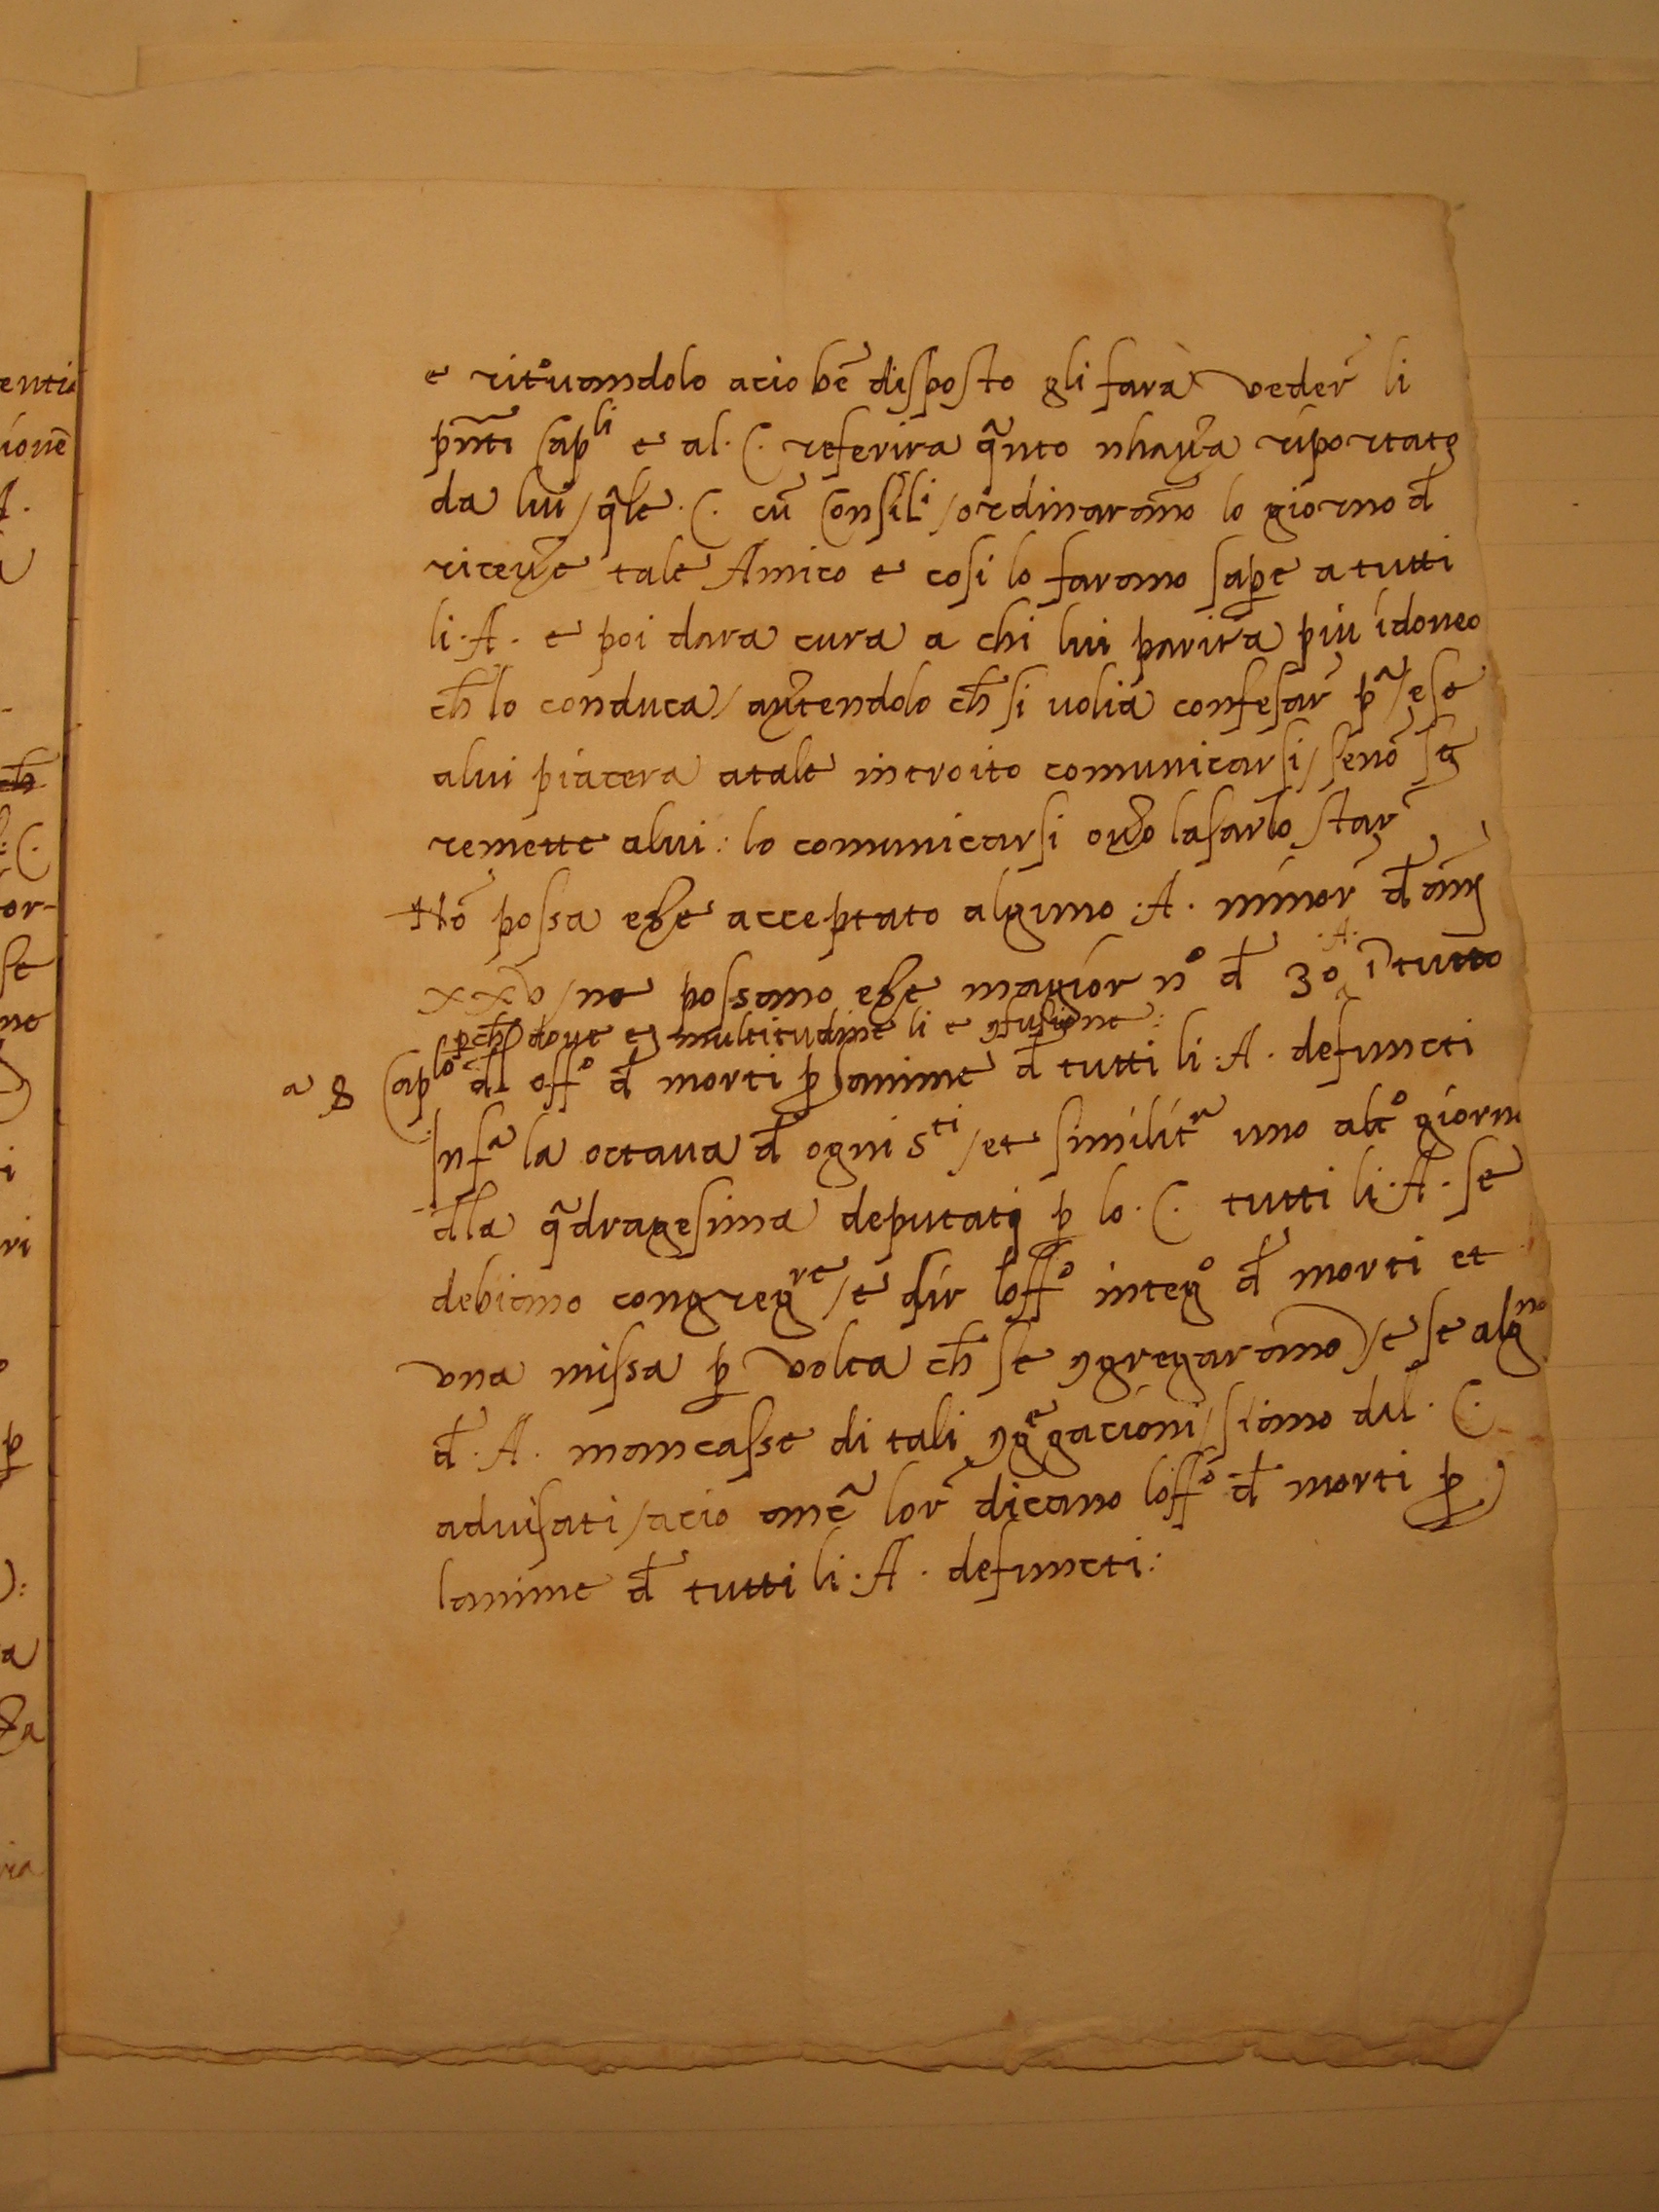 e ritͦuandolo acio bē disposto gli fara veder̄ li
pn̄ti Capˡⁱ e al .C. referira q̄nto nhaũa riportato
da lui / q̄le .C. cū Consilⁱ / ordinarano lo giorno đ
riceũe tale Amico e cosi lo farano sape a tutti
li .A. e poi dara cura a chi lui parira piu idoneo
ch̄ lo conduca / aũtendolo ch̄ si uolia confesar̄ pᵃ / ese
alui piacera atale introito comunicarsi / senō se
remette alui : lo comunicarsi oũo lasarlo star̄
Nō possa eße acceptato alguno .A. minor đ ani
xxv / no possano eße magior nº đ 30 .A. ī tutto
ꝑch̄ doue e multitudine li e ꝯfusione :
a 8 Capˡᵒ đl offº đ morti ꝑ lanime đ tutti li .A. defuncti
Infᵃ la octaua đ ogni Sᵗⁱ / et similitᵃ uno altº giorn
đla q̄dragesima deputato ꝑ lo .C. tutti li .A. se
debiano congregʳᵉ / e dir loffº integº đ morti et
vna missa ꝑ volta ch̄ se ꝯgregarano / e se algⁿᵒ
đ .A. mancasse di tali ꝯgᵉgacioni / siano dal .C.
aduisati / acio ancͣ lor̄ dicano loffº đ morti ꝑ
lanime đ tutti li .A. defuncti :